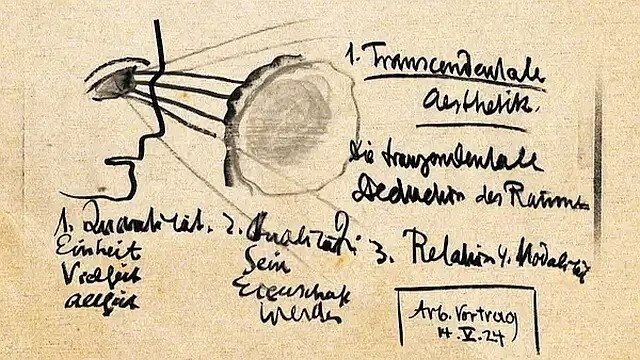 1. Transcendentale
Aesthetik.
Die tranzendentale
Deduction des Raumes
1. Quantität. 2. Qualität 3. Relation 4. Modalität
Einheit
Vielheit
Allheit
Sein
Eigenschaft
Werden
Arb. Vortrag
14. V. 24